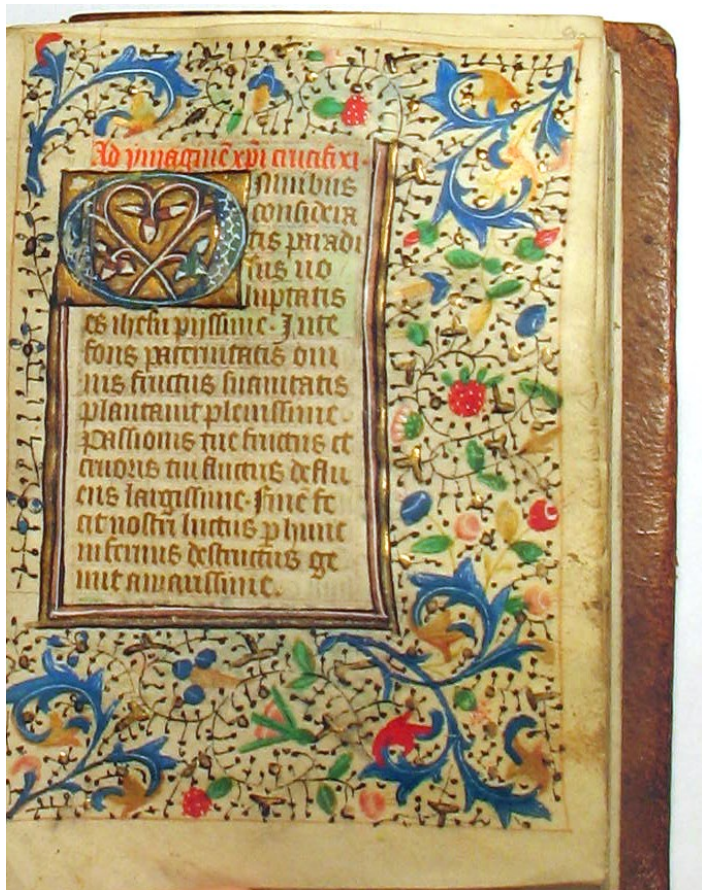 Ad ymaginē xp̄i crucifixi.
Omnibus
considera
tis paradi
sus uo
luptatis
es ihesu pijssime. In te
fons paternitatis om
nis fructus suauitatis
plantauit plenissime.
Passionis tue fructus et
cruoris tui fluctus deflu
ens largissime. finē fe
cit nostri luctus ꝑ hunc
infernus destructus ge
mit amarissime.